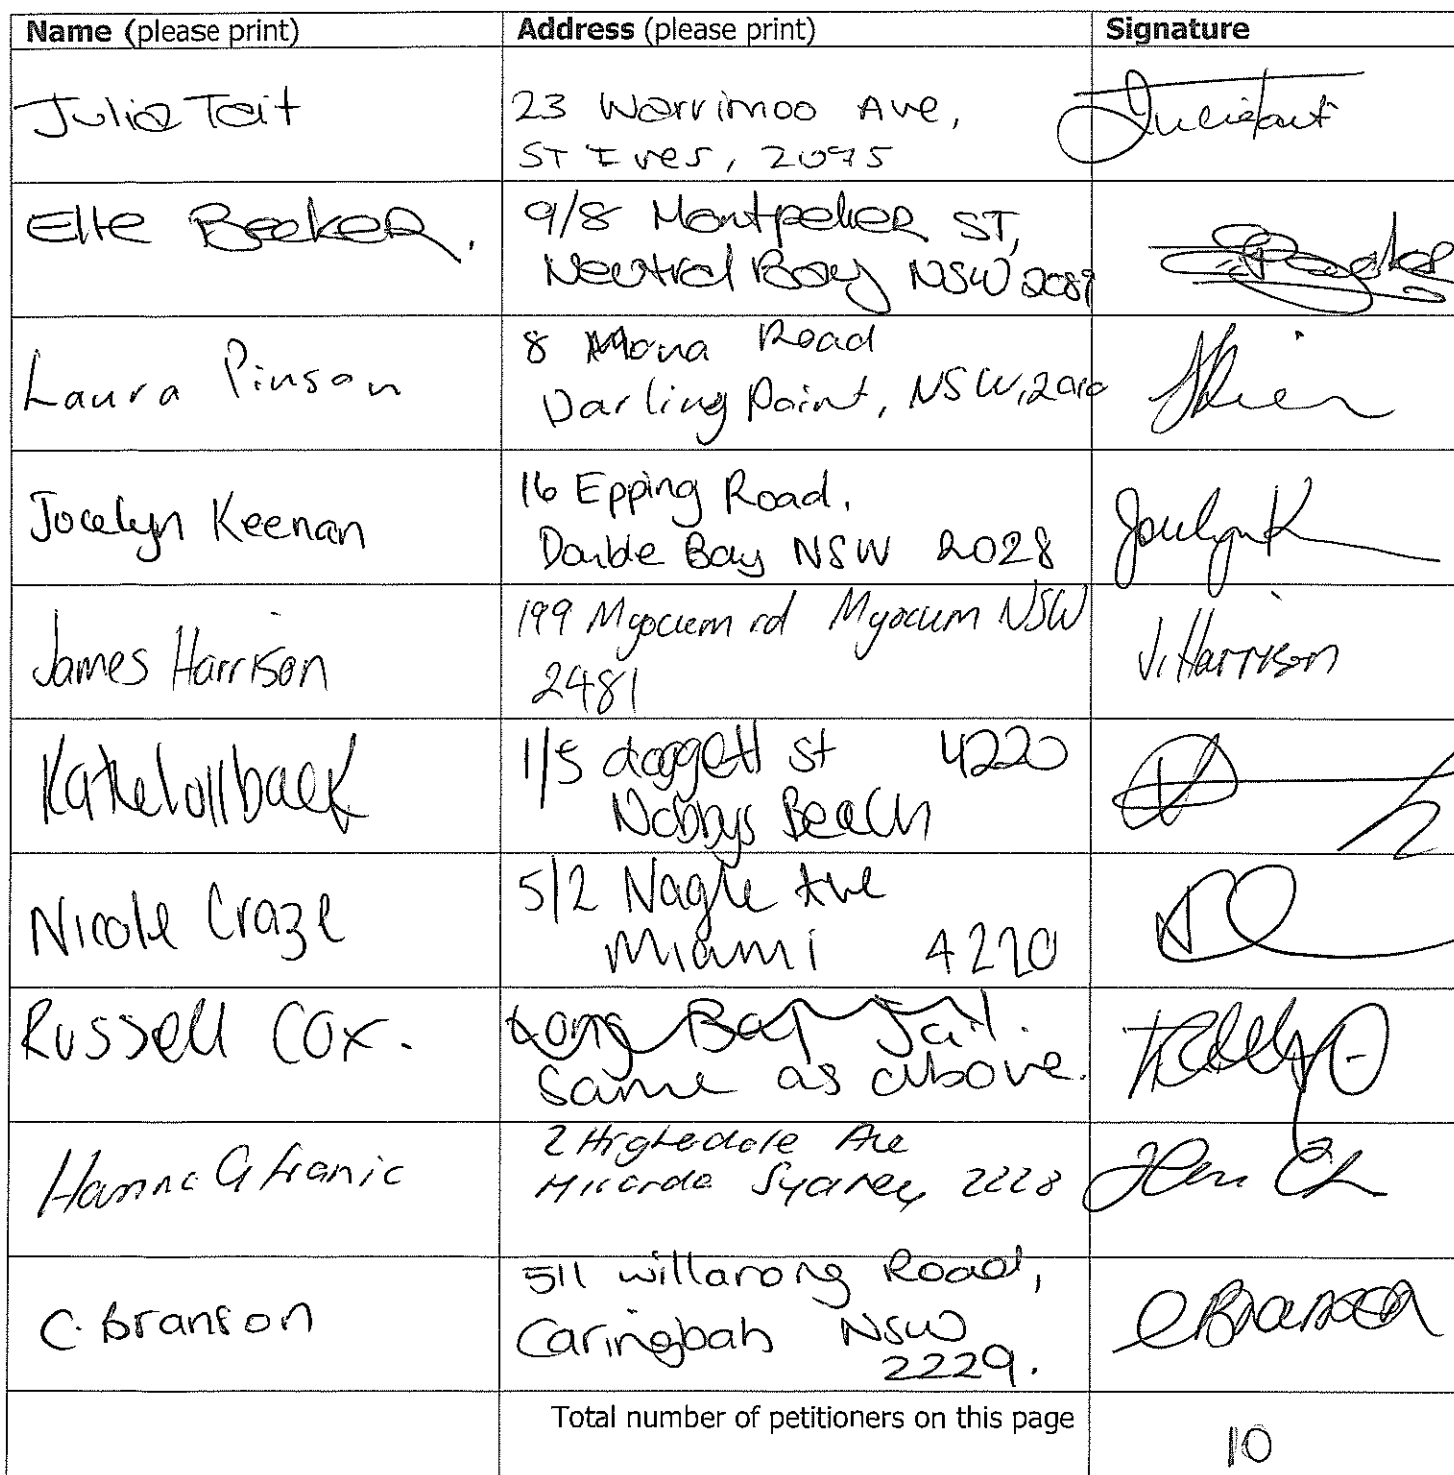 Name (please print) Address (please print) Signature
Julia Tait 23 Warrimoo Ave,
ST Ives, 2075
Elle Beeker. 9/8 Montpelier ST,
Neutral Bay NSW 2089
Laura Pinson 8 Mona Road
Darling Point, NSW, 2010
Jocelyn Keenan 16 Epping Road,
Double Bay NSW 2028 Jocelyn K
James Harrison 199 Myocum rd Myocum NSW
2481 J. Harrison
1/5 doggett st 4220
Nobbys Beach
Nicole Craze 5/2 Nagle Ave
Miami 4220
Russell Cox. Long Bay Jail.
Same as above.
2 Ave
2228
C. Branson 511 willarong Road,
Caringbah NSW
2229. CBranson
Total number of petitioners on this page 10